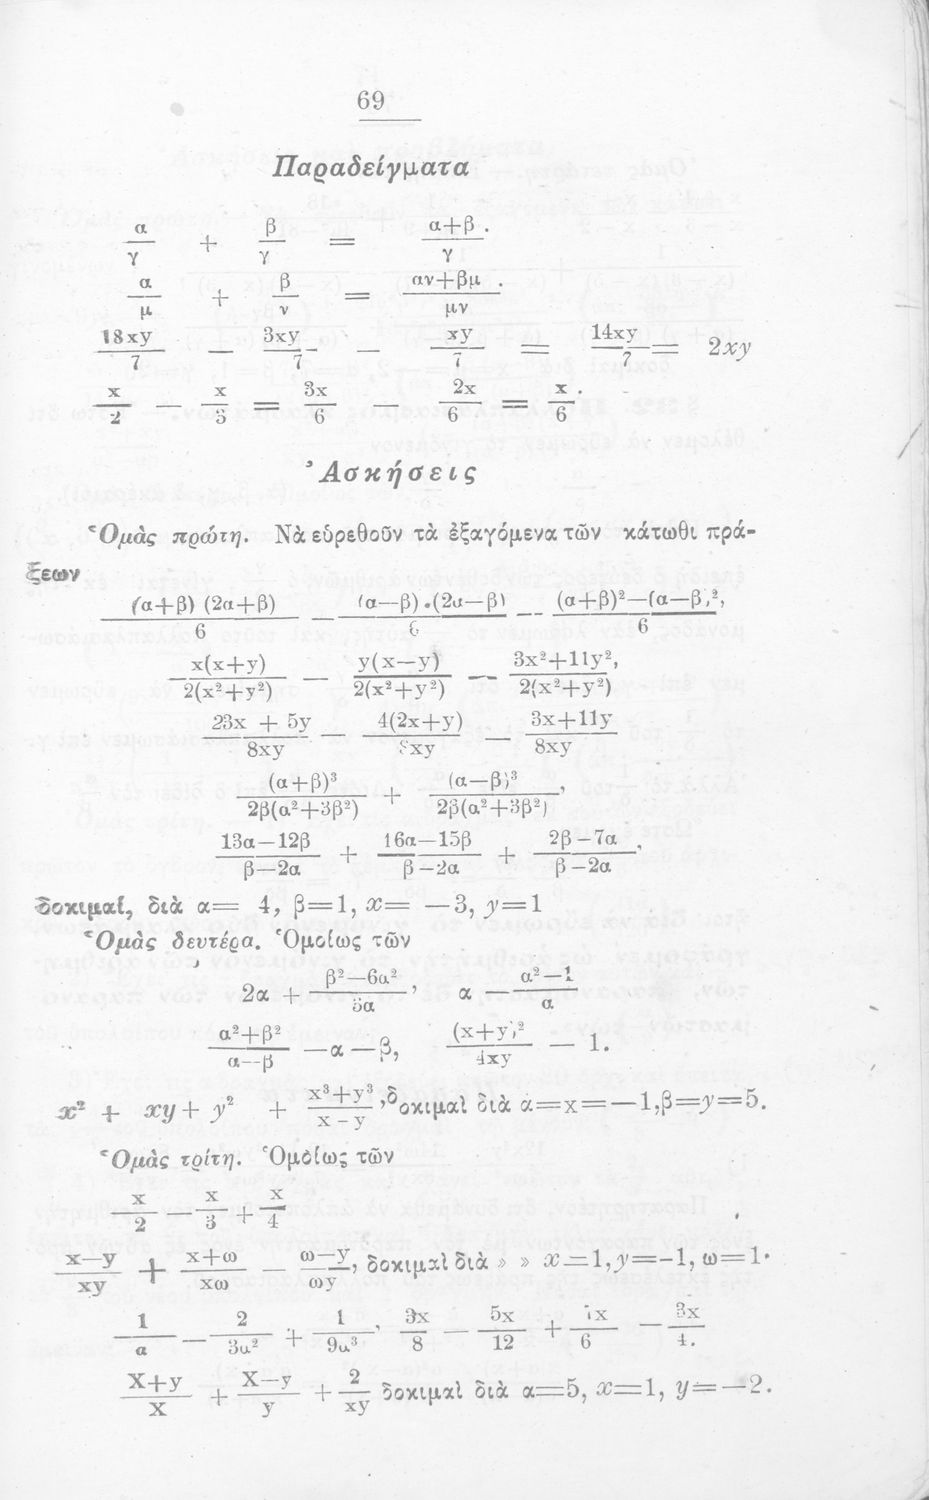 69
Παραδείγματα
α/γ + β/γ = α+β/γ .
α/μ + β/ν = αν+βμ/μν .
18xy/7 — 3xy/7 — xy/7 14xy/7 = 2xy
x/2 — x/3 = 3x/6 2x/6 = x/6 .
Ἀσκήσεις
Ὁμὰς πρώτη. Νὰ εὑρεθοῦν τὰ ἐξαγόμενα τῶν κάτωθι πρά-
ξεων
(α+β) (2α+β)/6 — (α—β).(2α—β)/6 — (α+β)²—(α—β)²/6,
x(x+y)/2(x²+y²) — y(x—y)/2(x²+y²) — 3x²+11y²/2(x²+y²),
23x + 5y/8xy — 4(2x+y)/8xy — 3x+11y/8xy
(α+β)³/2β(α²+3β²) + (α—β)³/2β(α²+3β²),
13α—12β/β—2α + 16α—15β/β—2α + 2β—7α/β—2α,
δοκιμαί, διὰ α= 4, β=1, x= —3, y=1
Ὁμὰς δευτέρα. Ὁμοίως τῶν
2α + β²—6α²/3α, α — α²—1/α
α²+β²/α—β —α—β, (x+y)²/4xy — 1.
x² + xy + y² + x³+y³/x-y, δοκιμαὶ διὰ α=x=—1,β=y=5.
Ὁμὰς τρίτη. Ὁμοίως τῶν
x/2 — x/3 + x/4
x—y/xy + x+ω/xω — ω—y/ωy, δοκιμαὶ διὰ » » x=1,y=—1, ω=1.
1/α — 2/3α² + 1/9α³, 3x/8 — 5x/12 + 7x/6 — 3x/4.
x+y/x + x—y/y + 2/xy δοκιμαὶ διὰ α=5, x=1, y=—2.